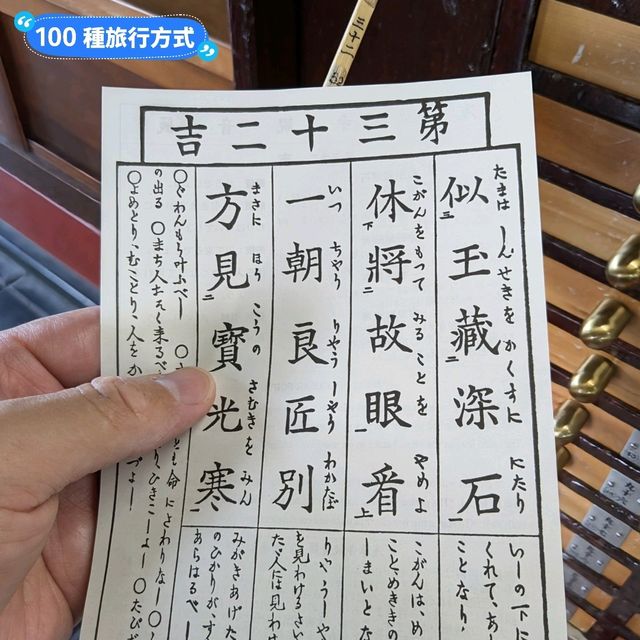 100 種旅行方式
三十二
第三十二吉
たまは しんせきを かくすに にたり
似三玉藏二深石一
こがんをもつて みることを やめよ
休下將二故眼一看上
いつ ちやう りやうしやう わかたば
一朝良匠別
まさに ほう こうの さむきを みん
方見二寶光寒一
いしの下に
くれて、あ
ことなり、
こがんは、め
しまいとな
りやうしや
を見わけるさい
た人には見わけ
みがきあげた
のひかりが、す
あらはるべし
とも命にさわりなし ○
の出る ○まち人おそく来るべ
りひきこしよし ○たびだ
○よめとり、むことり、人をか